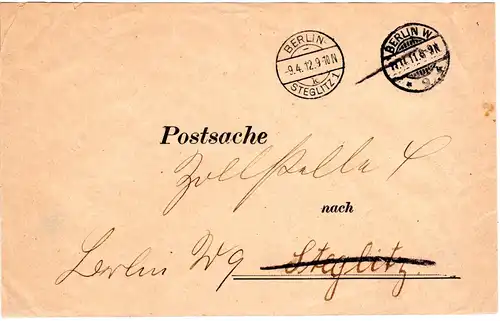 BERLIN-
-9.4.12.9-10N
k
STEGLITZ 1
BERLIN W
11.8-9N
* 9 *
Postsache
Zollstelle
nach
Berlin W 9 Steglitz.